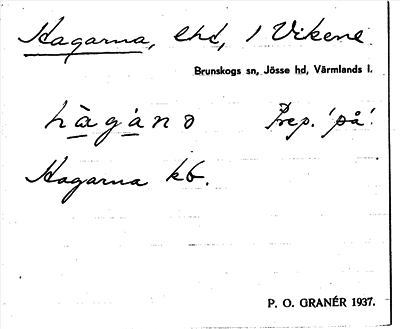 Hagarna, lhd, / Vikene
Brunskogs sn, Jösse hd, Värmlands l.
hàgàno Prep. 'på'.
Hagarna kb.
P. O. GRANÉR 1937.